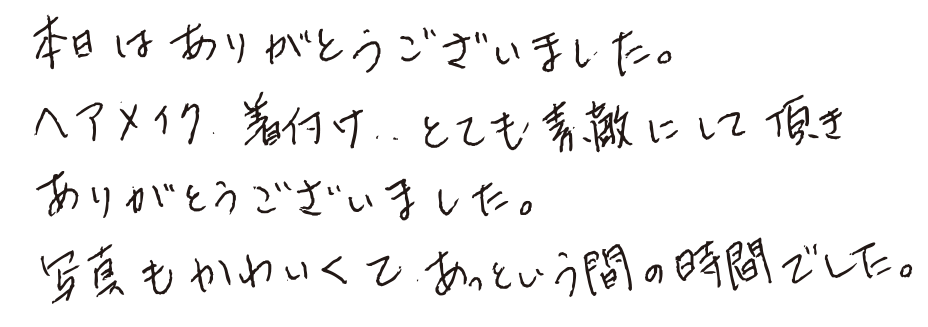 本日はありがとうございました。
ヘアメイク、着付け、とても素敵にして頂き
ありがとうございました。
写真もかわいくて、あっという間の時間でした。